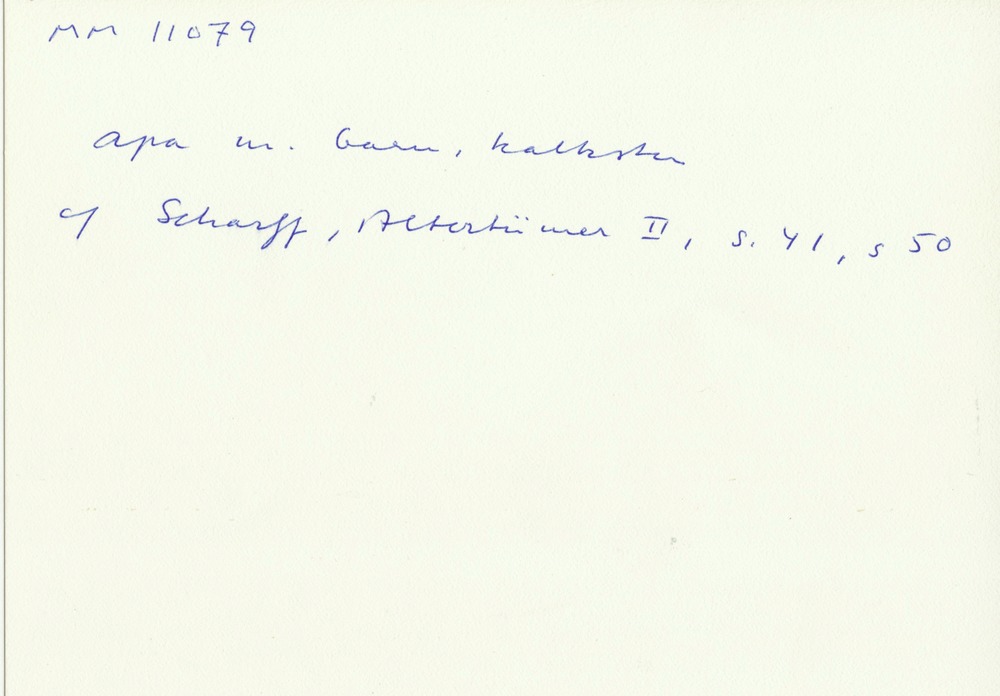 MM 11079
apa m. barn, kalksten
cf Scharff, Altertümer II, s. 41, s 50